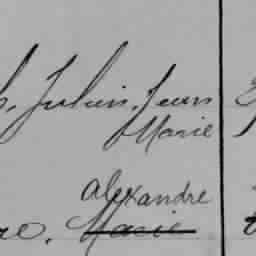 Julien, Jean
Marie
alexandre
re. Marie